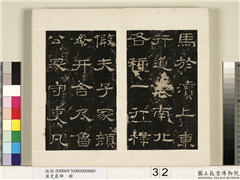 馬於瀆上東
行道表南北
各種一行梓
假夫子冢顏
母开舍及魯
公冢守吏凡
漢史晨碑 冊
32
國立故宮博物院